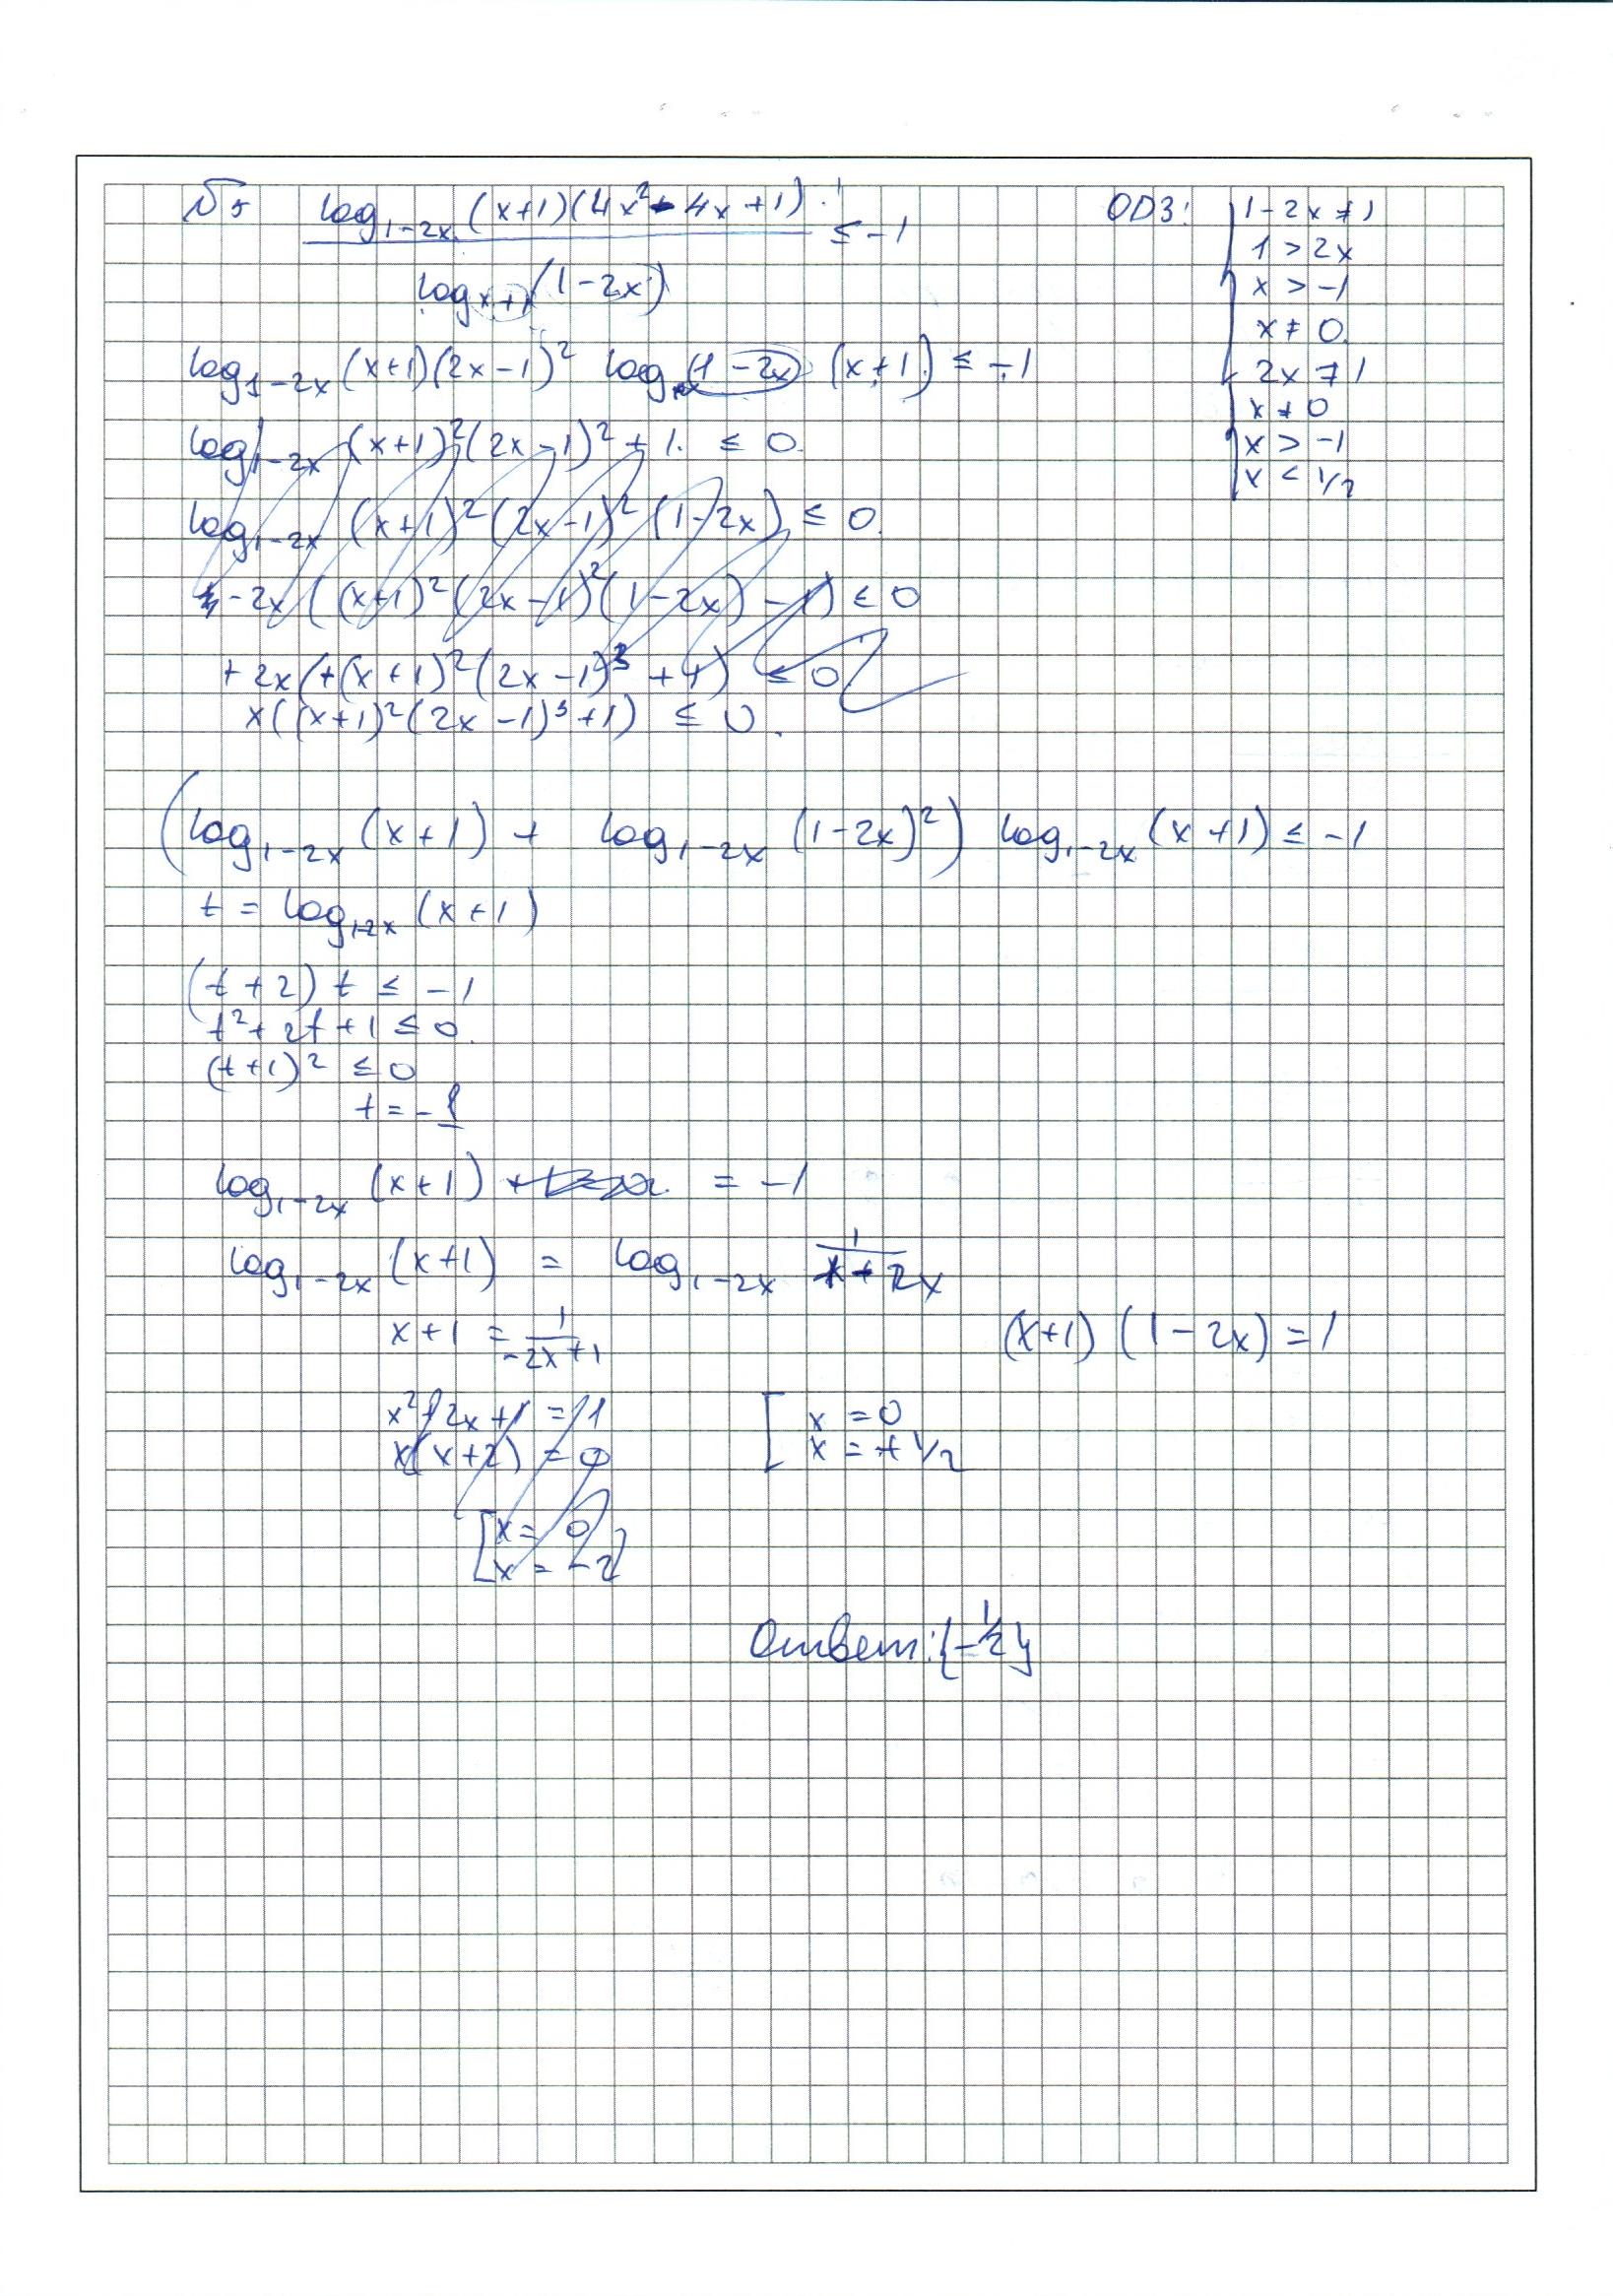 №5 log₁₋₂ₓ (x+1)(4x²-4x+1) ≤ -1
logₓ₊₁(1-2x)
ОДЗ: 1-2x≠1
1 > 2x
x > -1
x ≠ 0
2x ≠ 1
x ≠ 0
x > -1
x < 1/2
log₁₋₂ₓ (x+1)(2x-1)² log₁₋₂ₓ (x+1) ≤ -1
log₁₋₂ₓ (x+1)²(2x-1)² + 1 ≤ 0
log₁₋₂ₓ (x+1)²(2x-1)²(1-2x) ≤ 0
-2x((x+1)²(2x-1)²(1-2x)-1) ≤ 0
+2x(+(x+1)²(2x-1)³+1) ≤ 0
x((x+1)²(2x-1)³+1) ≤ 0
(log₁₋₂ₓ (x+1) + log₁₋₂ₓ (1-2x)²) log₁₋₂ₓ (x+1) ≤ -1
t = log₁₋₂ₓ (x+1)
(t+2) t ≤ -1
t²+2t+1 ≤ 0
(t+1)² ≤ 0
t = -1
log₁₋₂ₓ (x+1) = -1
log₁₋₂ₓ (x+1) = log₁₋₂ₓ 1/(1-2x)
x+1 = 1/(-2x+1) (x+1) (1-2x) = 1
x²+2x+1 = 1
x(x+2) = 0
[x = 0
x = -2
[x = 0
x = -1/2
Ответ: {-1/2}